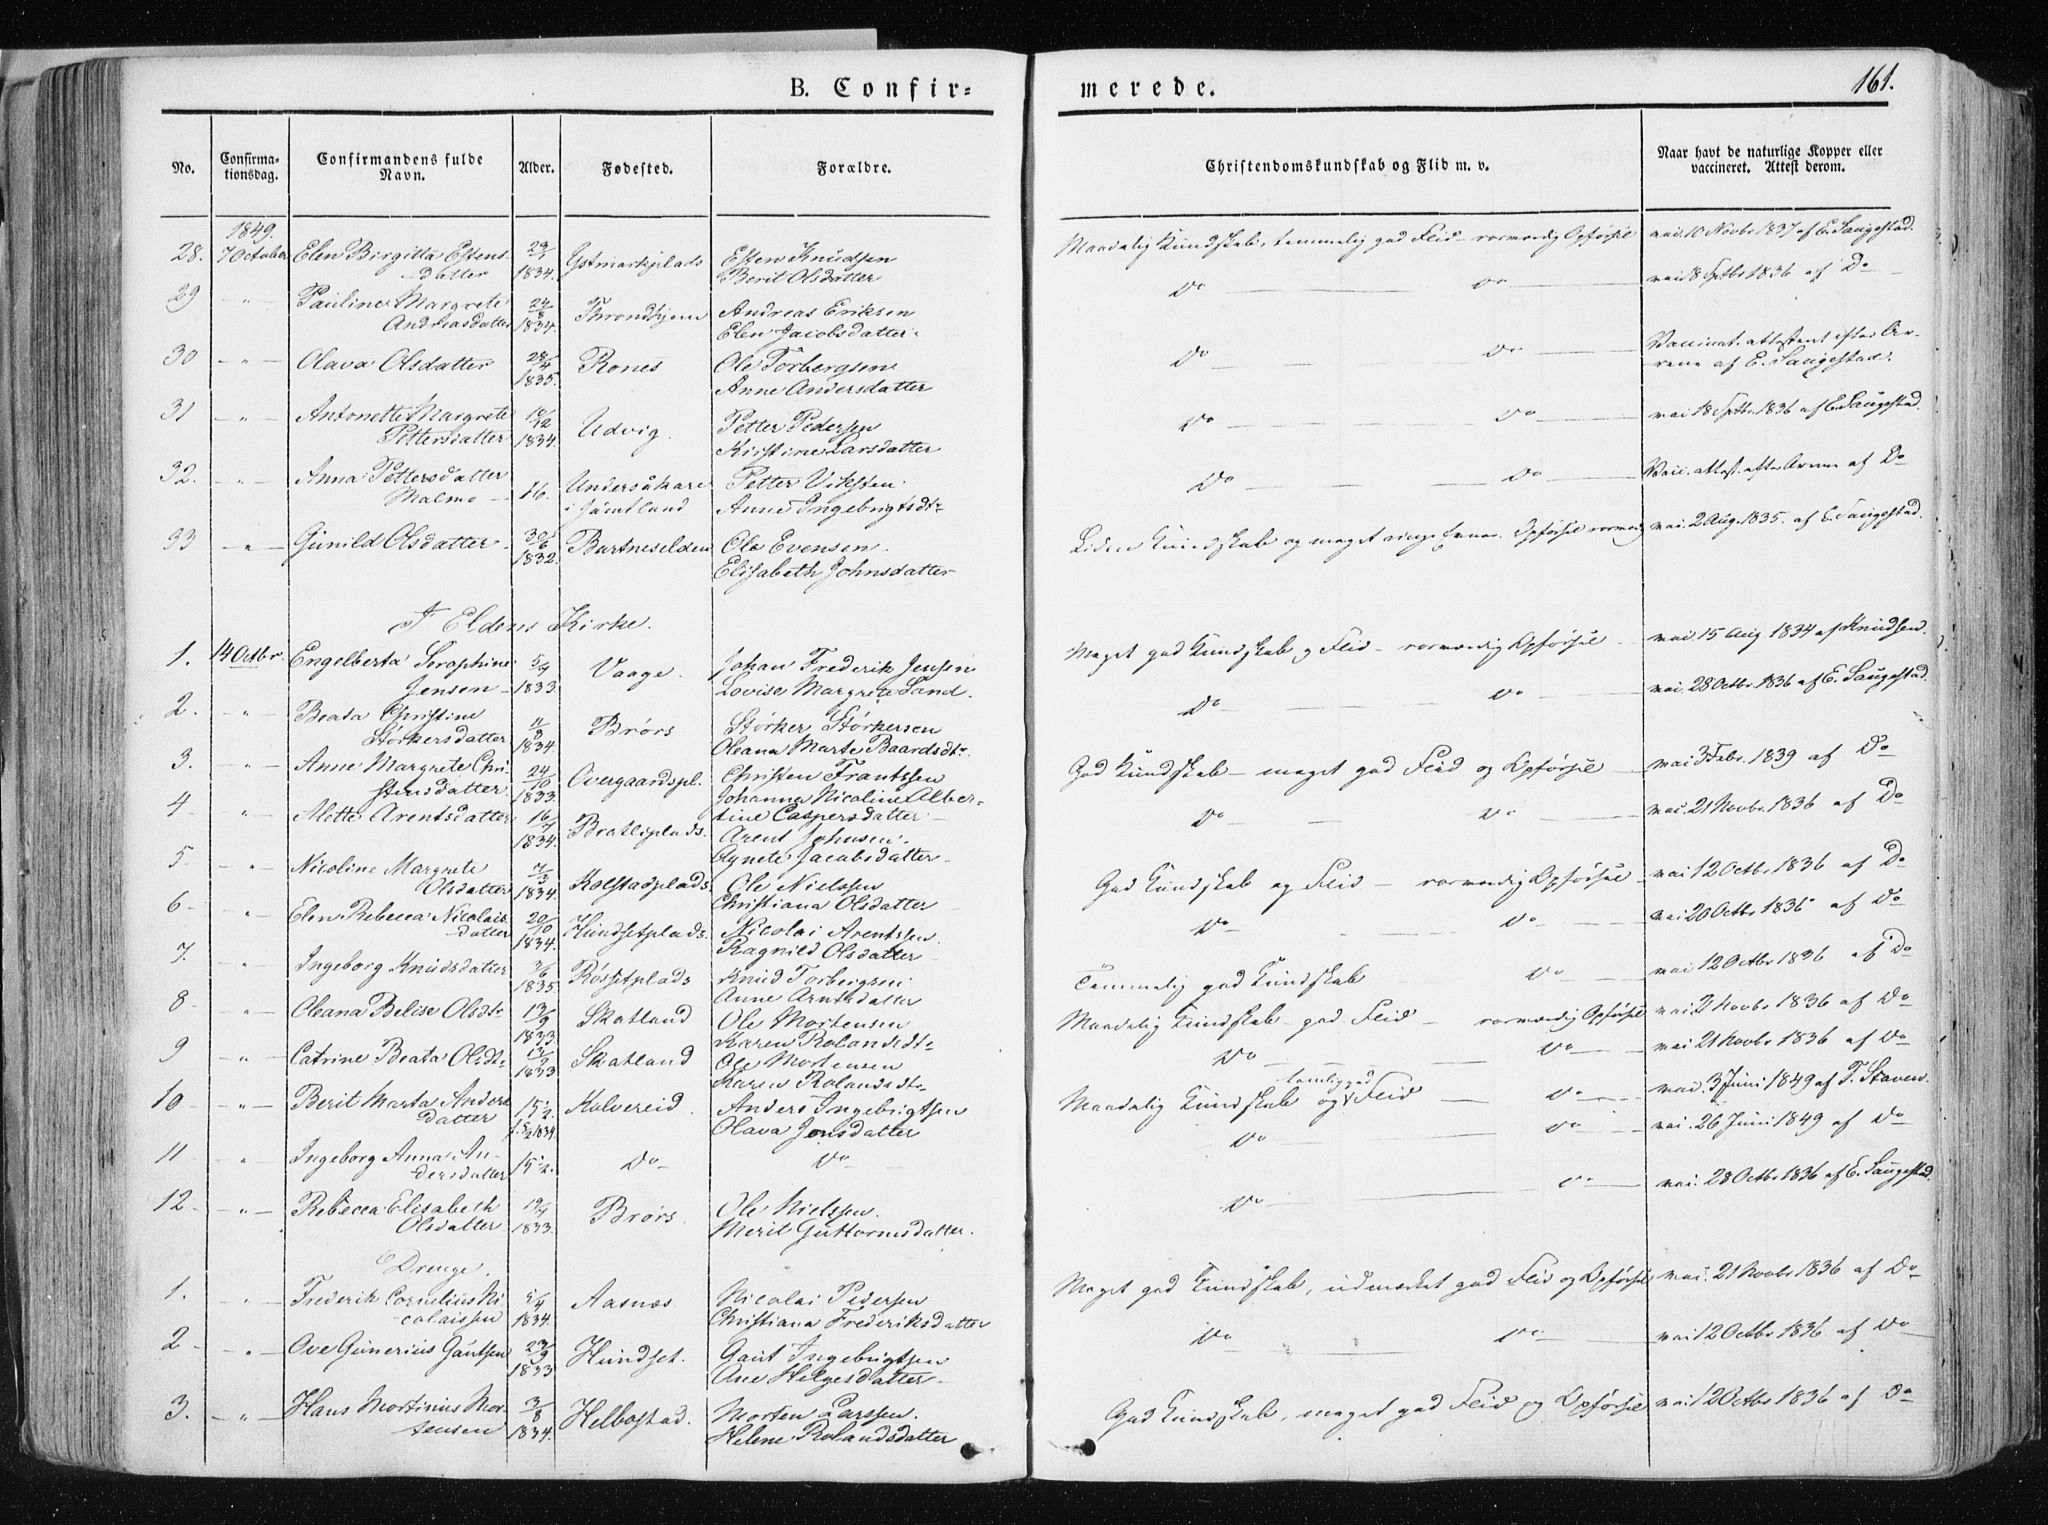 B. Confir-
merede.
161.
No.
Confirma-
tionsdag.
Confirmandens fulde
Navn.
Alder.
Fødested.
Forældre.
Christendomskundskab og Flid m. v.
Naar havt de naturlige Kopper eller
vaccineret. Attest derom.
1849.
28. 7 October Elen Birgitta Estens- 29/1 Ystmarkplads Esten Knudsen Maadelig Kundskab, temmelig god Flid - sormordig Opførsel vac. 10 Novbr 1837 af E. Saugestad.
datter 1834. Berit Olsdatter
29 - " - Pauline Margrete 24/8 Throndhjem Andreas Eriksen Do Do vac 18 Sptbr 1836 af Do
Andreasdatter 1834. Elen Jacobsdatter
30 - " - Olava Olsdatter 28/4 Rones Ole Torbergsen Do Do Vaccinat. attesteret efter Ar-
1835. Anne Andersdatter rene af E. Saugestad.
31 - " - Antonette Margrete 10/12 Udvig. Petter Pedersen Do Do vac 18 Sptbr. 1836 af E. Saugestad.
Pettersdatter 1834. Kirstine Larsdatter
32. - " - Anna Pettersdatter 16. Undersåkare Petter Viksten Do Do Vacc. attest. efter Arrene af Do
Malmo i Jämtland Anne Ingebrigtsdtr
33 - " - Gunild Olsdatter 30/6 Bartneselden Ole Evensen Liden Kundskab og meget ringe Evner. Opførsel vac. 2 Aug. 1835. af E. Saugestad.
1832. Elisabeth Johnsdatter
I Eldens Kirke.
1. 14 Octbr. Engelberta Seraphine 5/4 Vaage. Johan Frederik Jensen Meget god Kundskab og Flid - Opførsel vac 15 Aug 1834 af Knudsen.
Jensen 1833. Lovise Margrete Sand.
2. - " - Beata Christine 11/8 Brørs Størker Størkersen Do Do vac. 28 Octbr. 1836 af E. Saugestad.
Størkersdatter 1834 Oleana Marte Baardsdtr
3. - " - Anne Margrete Chri- 24/10 Overgaardspl. Christen Frantssen God Kundskab - meget god Flid og Opførsel vac 3 Febr. 1839 af Do
stensdatter 1833. Johanna Nicoline Alber-
tine Caspersdatter
4 - " - Mette Arentsdatter 16/7 Bratliplads. Arent Johnsen Do Do vac. 21 Novbr. 1836 af Do
1834. Agnete Jacobsdatter
5. - " - Nicoline Margrete 7/3 Kolstadplads Ole Nielssen God Kundskab og Flid - Opførsel vac 12 Octbr. 1836 af Do
Olsdatter 1834. Christiana Olsdatter
6 - " - Elen Rebecca Nicolais- 20/10 Hundsetplads Nicolai Arentssen. Do Do vac 20 Octbr 1836 af Do
datter 1834. Ragnild Olsdatter
7. " - Ingeborg Knudsdatter 3/6 Røssetplads Knud Torbergsen Temmelig god Kundskab Do vac 12 Octbr 1836 af Do
1835. Anne Arntsdatter
8 - " - Oleana Belise Olsdtr 13/9 Skatland Ole Mortensen Maadelig Kundskab - god Flid - Opførsel vac 2 Novbr 1836 af Do
1833 Karen Rolandsdtr
9 - " - Catrine Beata Olsdtr 13/9 Skatland Ole Mortensen Do Do vac. 21 Novbr 1836 af Do
1833 Karen Rolandsdtr
10 - " - Berit Marta Anders- 15 1/2. Kolvereid. Anders Ingebrigtsen Maadelig Kundskab og temlig god Flid Do vac. 3 Juni 1849 af T. Staven.
datter f. 5/2 1834. Olava Jonsdatter
11 - " - Ingeborg Anna An- 15 1/2. Do Do Do Do vac. 26 Juni 1849 af Do
dersdatter
12. - " - Rebecca Elisabeth 19/4 Brørs. Ole Nielssen. Do Do vac. 28 Octbr 1836 af E. Saugestad.
Olsdatter 1833. Merit Guttormsdatter.
Drenge.
1. - " - Frederik Cornelius Ni- 5/4 Aasnæs. Nicolai Pedersen Meget god Kundskab, udmærket god Flid og Opførsel vac. 21 Novbr 1836 af Do
colaissen 1834. Christiana Frederiksdatter
2 - " - Ove Gunerius Gautsen 23/9 Hundset. Gaut Ingebrigtsen Do Do vac 12 Octbr 1836 af Do
1833 Ane Helgesdatter
3. - " - Hans Mortinius Mor- 3/8 Helbostad. Morten Larssen. God Kundskab, meget god Flid og Opførsel vac 12 Octbr 1836 af Do
tensen 1834. Helene Rolandsdatter